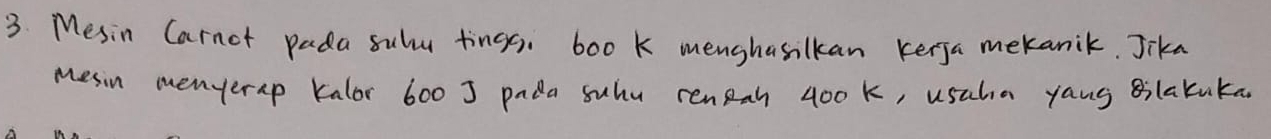 3. Mesin Carnot pada suhu tinggi 600 K menghasilkan kerja mekanik. Jika
Mesin menyerap kalor 600 J pada suhu rendah 400 K, usaha yang dilakukan